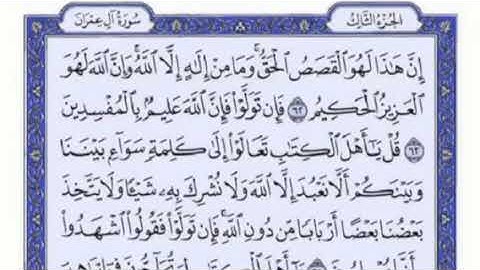 الجزء الثالث
سورة آل عمران
إِنَّ هَٰذَا لَهُوَ ٱلْقَصَصُ ٱلْحَقُّ ۚ وَمَا مِنْ إِلَٰهٍ إِلَّا ٱللَّهُ ۚ وَإِنَّ ٱللَّهَ لَهُوَ
ٱلْعَزِيزُ ٱلْحَكِيمُ ٦٢ فَإِن تَوَلَّوْا۟ فَإِنَّ ٱللَّهَ عَلِيمٌۢ بِٱلْمُفْسِدِينَ
٦٣ قُلْ يَٰٓأَهْلَ ٱلْكِتَٰبِ تَعَالَوْا۟ إِلَىٰ كَلِمَةٍ سَوَآءٍۭ بَيْنَنَا
وَبَيْنَكُمْ أَلَّا نَعْبُدَ إِلَّا ٱللَّهَ وَلَا نُشْرِكَ بِهِۦ شَيْـًٔا وَلَا يَتَّخِذَ
بَعْضُنَا بَعْضًا أَرْبَابًا مِّن دُونِ ٱللَّهِ ۚ فَإِن تَوَلَّوْا۟ فَقُولُوا۟ ٱشْهَدُوا۟